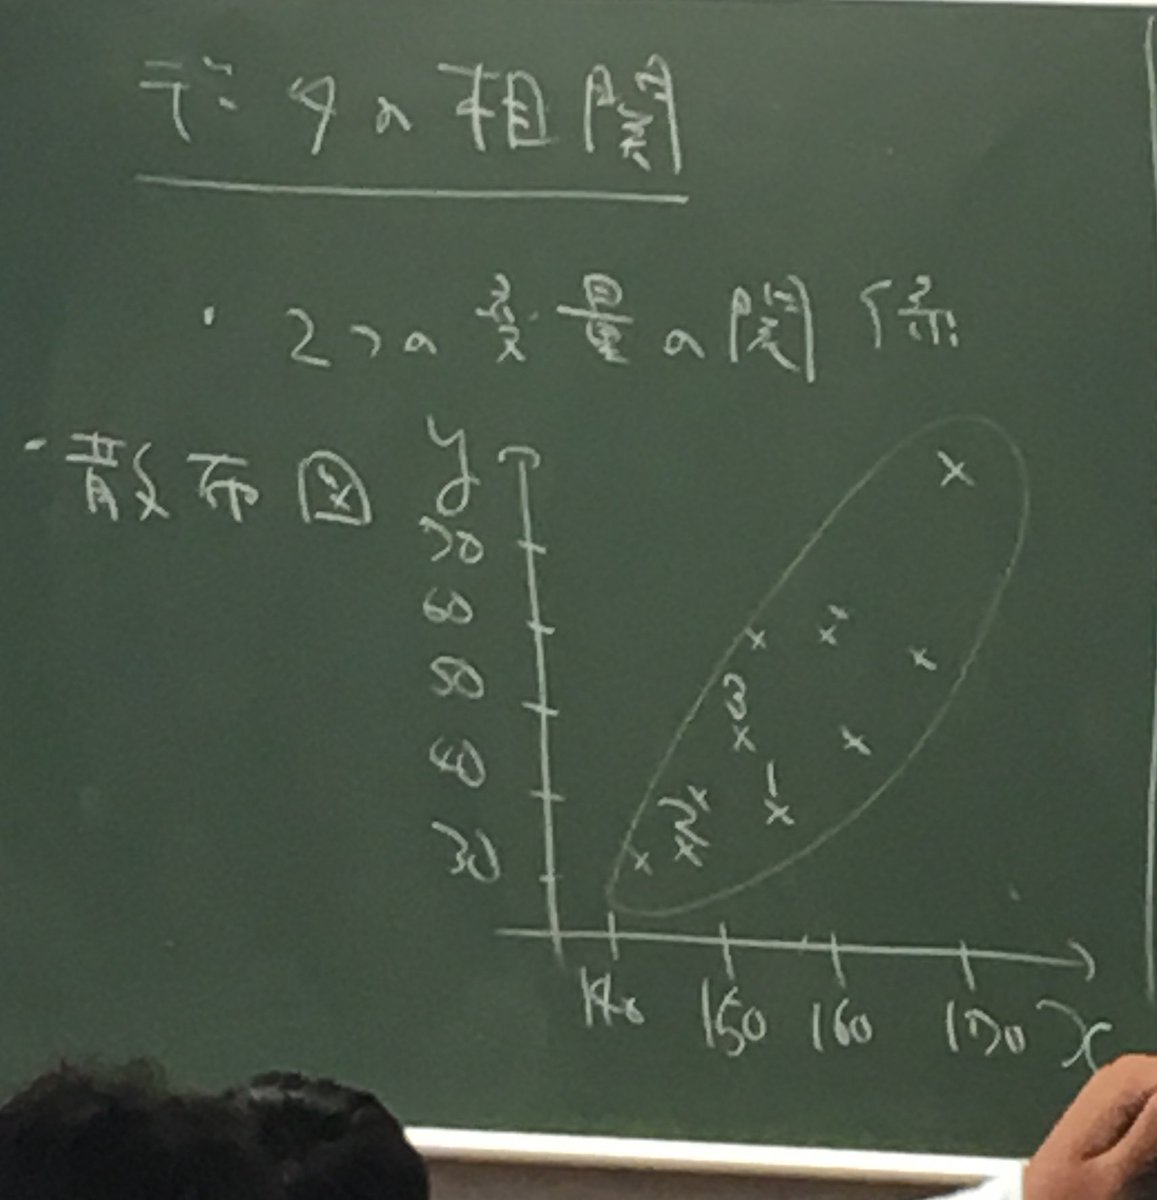 データの相関
・2つの変量の関係
・散布図
y
70
60
50
40
30
3
2
1
140 150 160 170 x